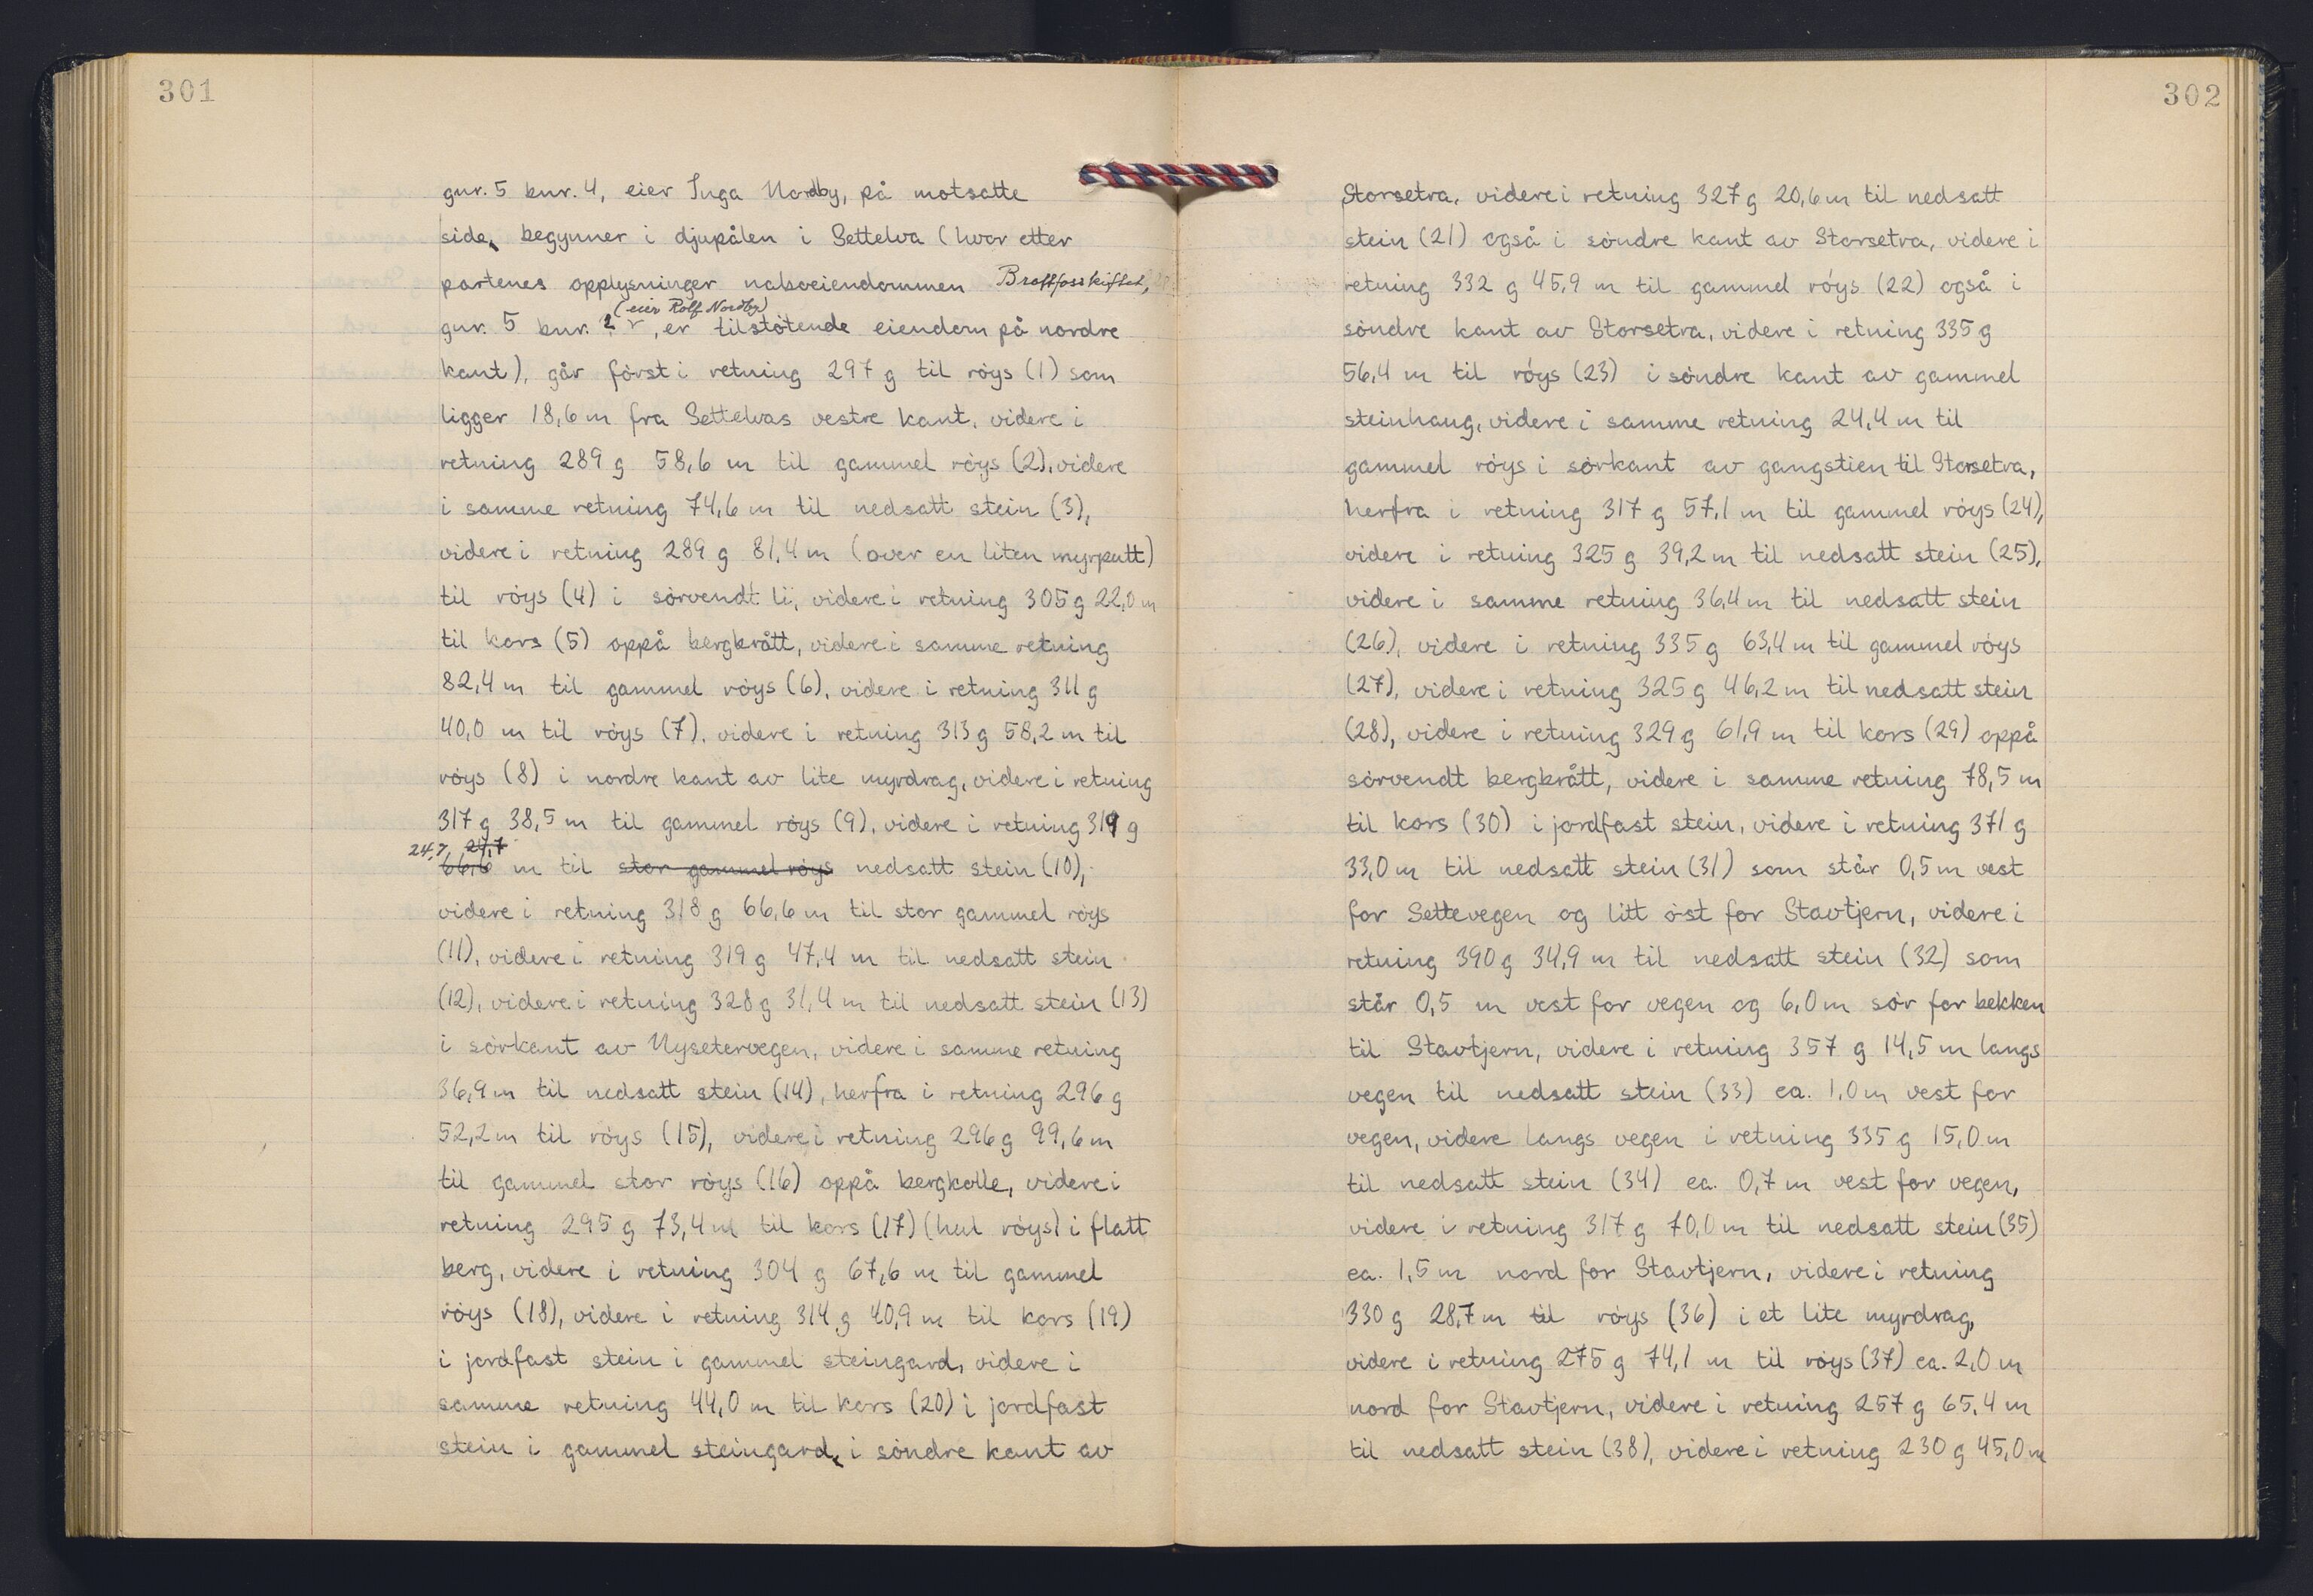 301
gnr. 5 bnr. 4, eier Inga Nordby, på motsatte
side, begynner i djupålen i Settelva (hvor etter
partenes opplysninger naboeiendommen Bråtfosskiftet,
(eier Rolf Nordby)
gnr. 5 bnr. 2, er tilstøtende eiendom på nordre
kant), går først i retning 297 g til røys (1) som
ligger 18,6 m fra Settelvas vestre kant, videre i
retning 289 g 58,6 m til gammel røys (2), videre
i samme retning 74,6 m til nedsatt stein (3),
videre i retning 289 g 81,4 m (over en liten myrputt)
til røys (4) i sørvendt li, videre i retning 305 g 22,0 m
til kors (5) oppå bergkrått, videre i samme retning
82,4 m til gammel røys (6), videre i retning 311 g
40,0 m til røys (7), videre i retning 313 g 58,2 m til
røys (8) i nordre kant av lite myrdrag, videre i retning
317 g 38,5 m til gammel røys (9), videre i retning 319 g
24,7 27,7
66,6 m til stor gammel røys nedsatt stein (10),
videre i retning 318 g 66,6 m til stor gammel røys
(11), videre i retning 319 g 47,4 m til nedsatt stein
(12), videre i retning 328 g 31,4 m til nedsatt stein (13)
i sørkant av Nysetervegen, videre i samme retning
36,9 m til nedsatt stein (14), herfra i retning 296 g
52,2 m til røys (15), videre i retning 296 g 99,6 m
til gammel stor røys (16) oppå bergkolle, videre i
retning 295 g 73,4 m til kors (17) (hul røys) i flatt
berg, videre i retning 304 g 67,6 m til gammel
røys (18), videre i retning 314 g 40,9 m til kors (19)
i jordfast stein i gammel steingard, videre i
samme retning 44,0 m til kors (20) i jordfast
stein i gammel steingard, i søndre kant av
302
Storsetra, videre i retning 327 g 20,6 m til nedsatt
stein (21) også i søndre kant av Storsetra, videre i
retning 332 g 45,9 m til gammel røys (22) også i
søndre kant av Storsetra, videre i retning 335 g
56,4 m til røys (23) i søndre kant av gammel
steinhaug, videre i samme retning 24,4 m til
gammel røys i sørkant av gangstien til Storsetra,
herfra i retning 317 g 57,1 m til gammel røys (24),
videre i retning 325 g 39,2 m til nedsatt stein (25),
videre i samme retning 36,4 m til nedsatt stein
(26), videre i retning 335 g 63,4 m til gammel røys
(27), videre i retning 325 g 46,2 m til nedsatt stein
(28), videre i retning 329 g 61,9 m til kors (29) oppå
sørvendt bergkrått, videre i samme retning 78,5 m
til kors (30) i jordfast stein, videre i retning 371 g
33,0 m til nedsatt stein (31) som står 0,5 m vest
for Settevegen og litt øst for Stavtjern, videre i
retning 390 g 34,9 m til nedsatt stein (32) som
står 0,5 m vest for vegen og 6,0 m sør for bekken
til Stavtjern, videre i retning 357 g 14,5 m langs
vegen til nedsatt stein (33) ca. 1,0 m vest for
vegen, videre langs vegen i retning 335 g 15,0 m
til nedsatt stein (34) ca. 0,7 m vest for vegen,
videre i retning 317 g 70,0 m til nedsatt stein (35)
ca. 1,5 m nord for Stavtjern, videre i retning
330 g 28,7 m til røys (36) i et lite myrdrag,
videre i retning 275 g 74,1 m til røys (37) ca. 2,0 m
nord for Stavtjern, videre i retning 257 g 65,4 m
til nedsatt stein (38), videre i retning 230 g 45,0 m